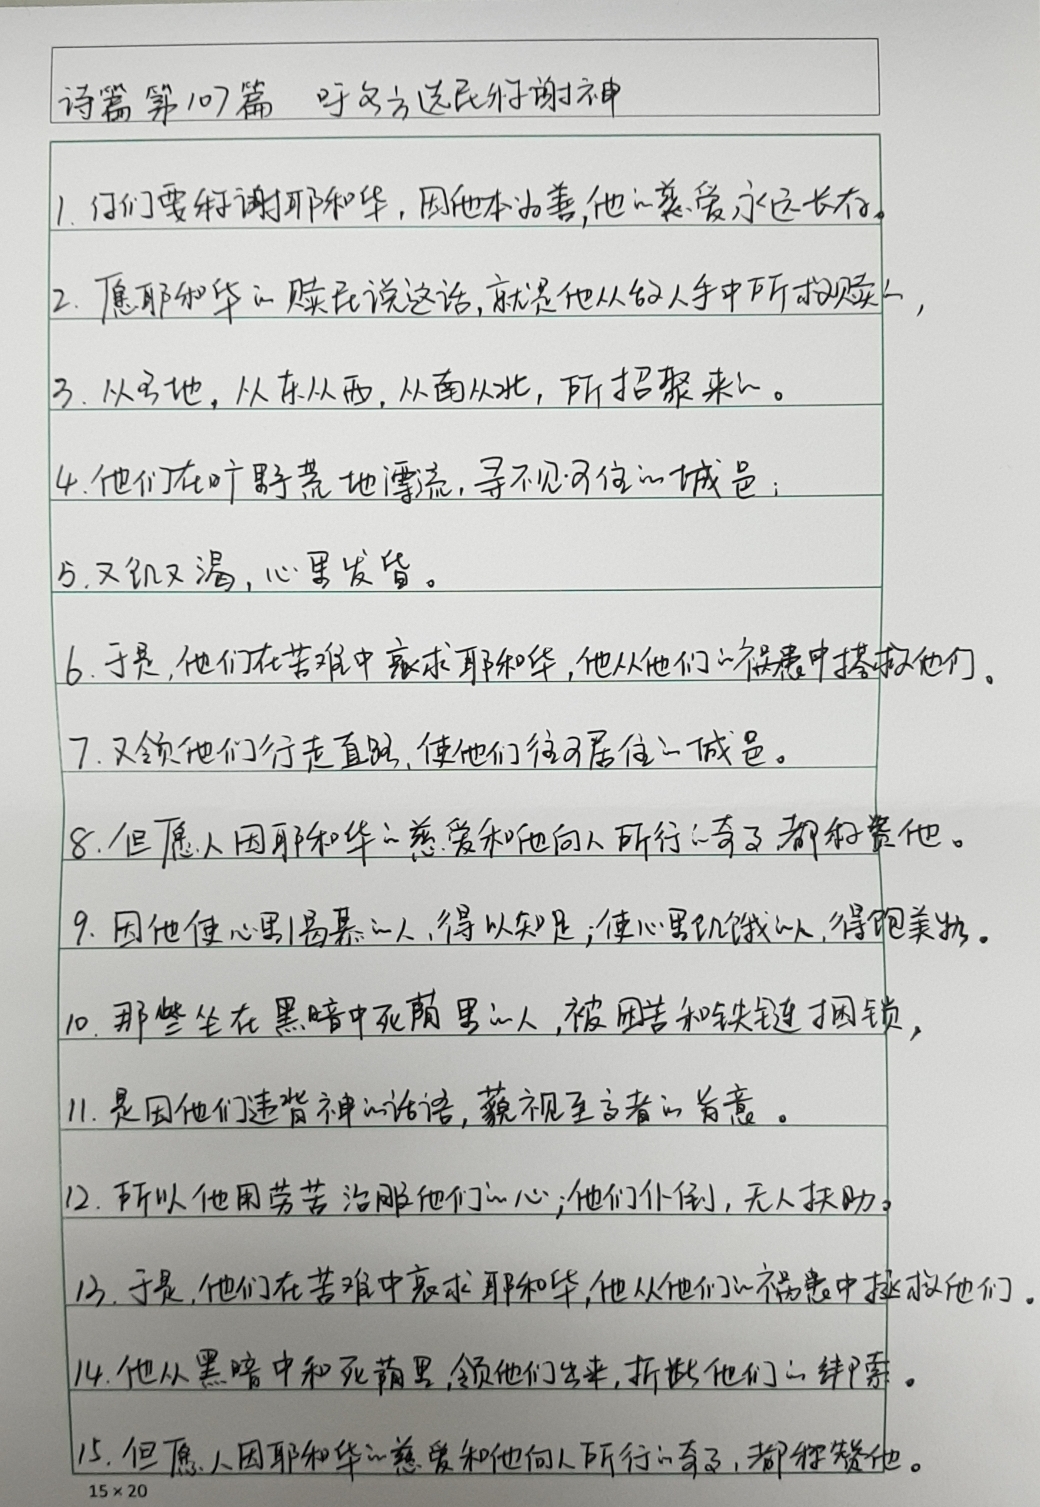 诗篇 第107篇 吁各方选民称谢神
1. 你们要称谢耶和华，因他本为善，他的慈爱永远长存。
2. 愿耶和华的赎民说这话，就是他从敌人手中所救赎的，
3. 从各地，从东从西，从南从北，所招聚来的。
4. 他们在旷野荒地漂流，寻不见可住的城邑；
5. 又饥又渴，心里发昏。
6. 于是，他们在苦难中哀求耶和华，他从他们的祸患中搭救他们。
7. 又领他们行走直路，使他们往可居住的城邑。
8. 但愿人因耶和华的慈爱和他向人所行的奇事都称赞他。
9. 因他使心里渴慕的人，得以知足；使心里饥饿的人，得饱美物。
10. 那些坐在黑暗中死荫里的人，被困苦和铁链捆锁，
11. 是因他们违背神的话语，藐视至高者的旨意。
12. 所以他用劳苦治服他们的心；他们仆倒，无人扶助。
13. 于是，他们在苦难中哀求耶和华，他从他们的祸患中拯救他们。
14. 他从黑暗中和死荫里，领他们出来，折断他们的绑索。
15. 但愿人因耶和华的慈爱和他向人所行的奇事，都称赞他。
15×20